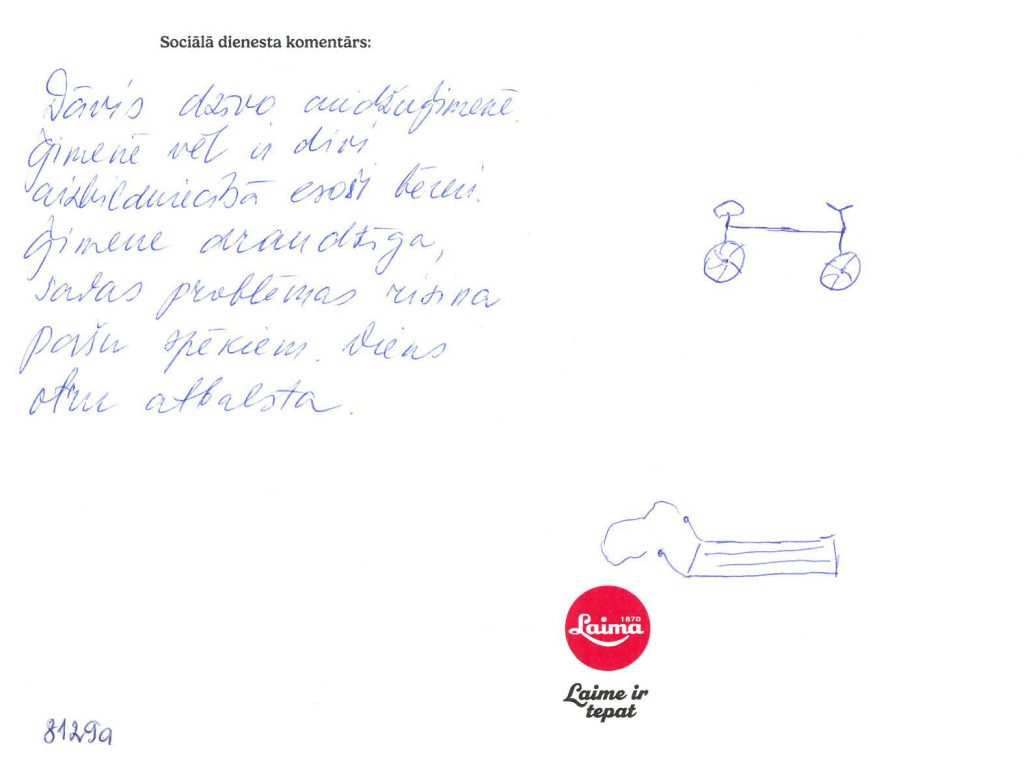 Sociālā dienesta komentārs:
Dāvis dzīvo audžuģimenē.
Ģimenē vēl ir divi
aizbildniecībā esoši bērni.
Ģimene draudzīga,
savas problēmas risina
pašu spēkiem. Viens
otru atbalsta.
1870
Laima
Laime ir
tepat
8129a